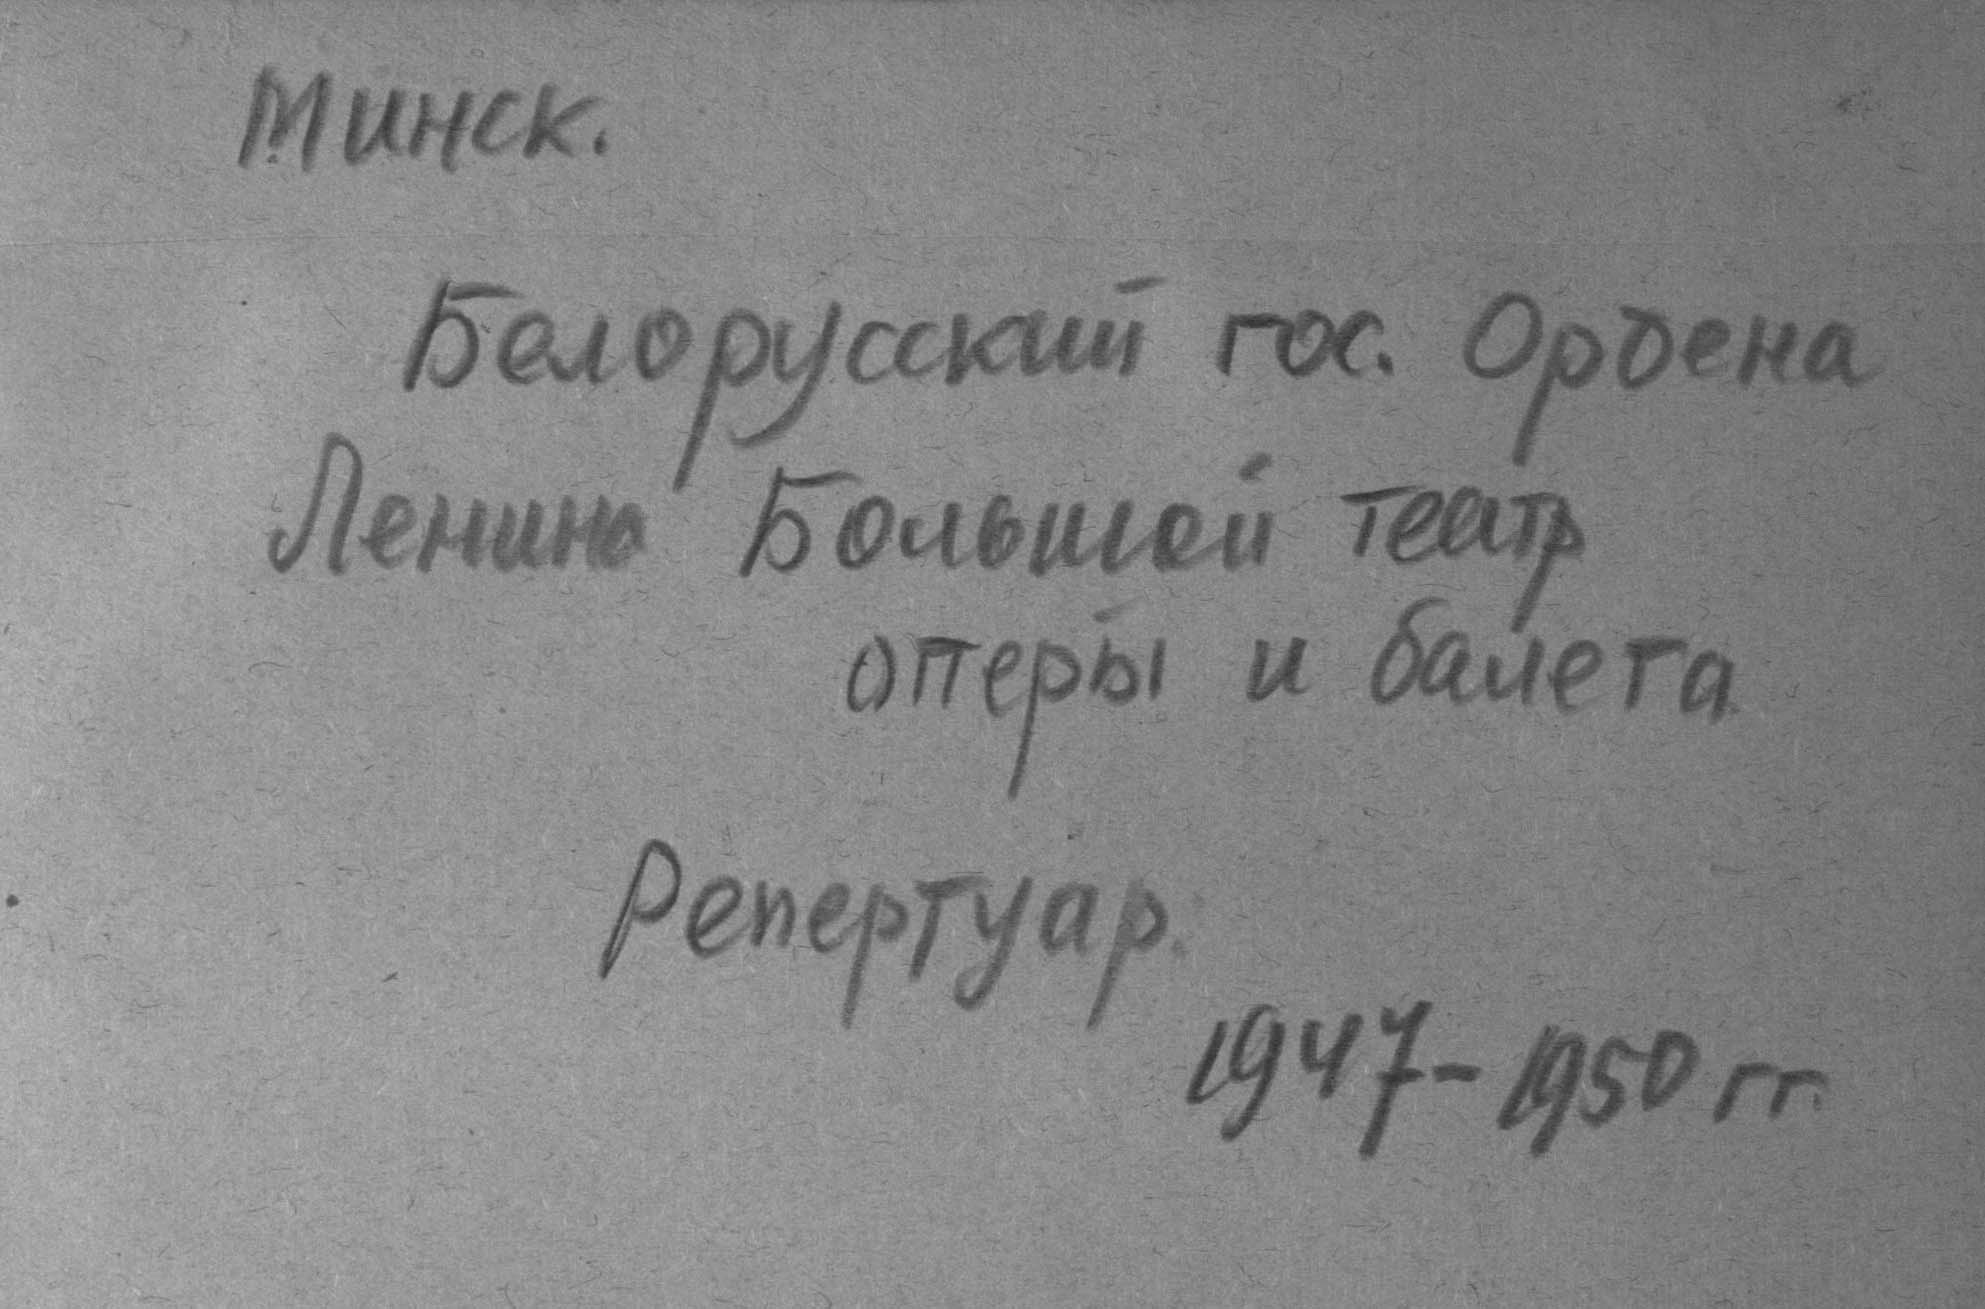 Минск.
Белорусский гос. Ордена
Ленина Большой театр
оперы и балета
Репертуар.
1947-1950 гг.